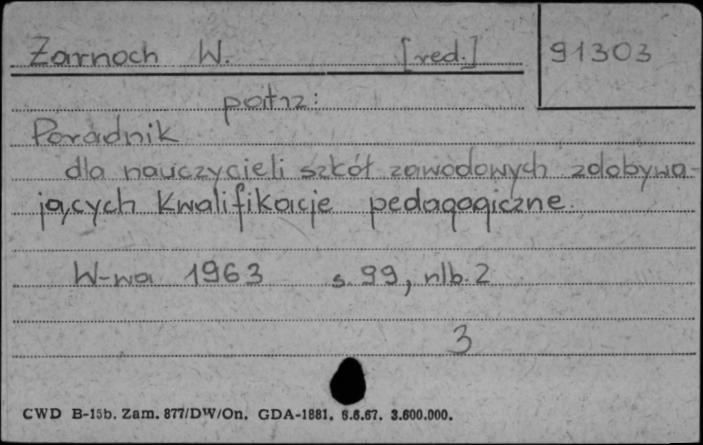 Żarnoch W. [red.] 91303
patrz:
Poradnik
dla nauczycieli szkół zawodowych zdobywa-
jących kwalifikacje pedagogiczne.
W-wa 1963 s. 99, nlb. 2
3
CWD B-15b. Zam. 877/DW/On. GDA-1881. 8.6.67. 3.600.000.